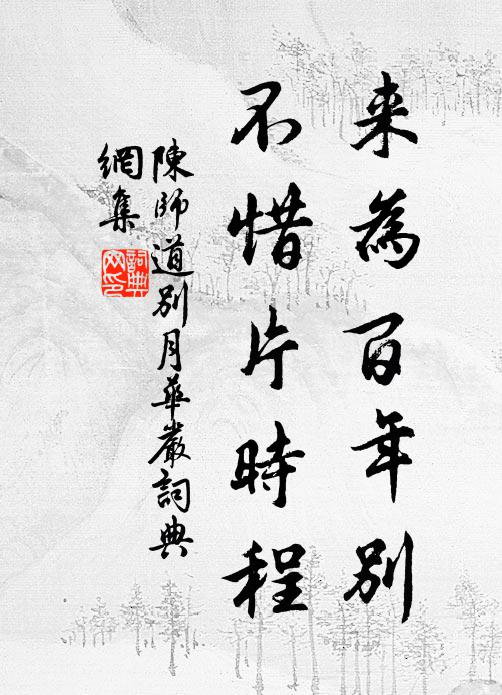 来為百年别
不惜片時程
陳師道别月華嚴詞典
網集
詞典
网印